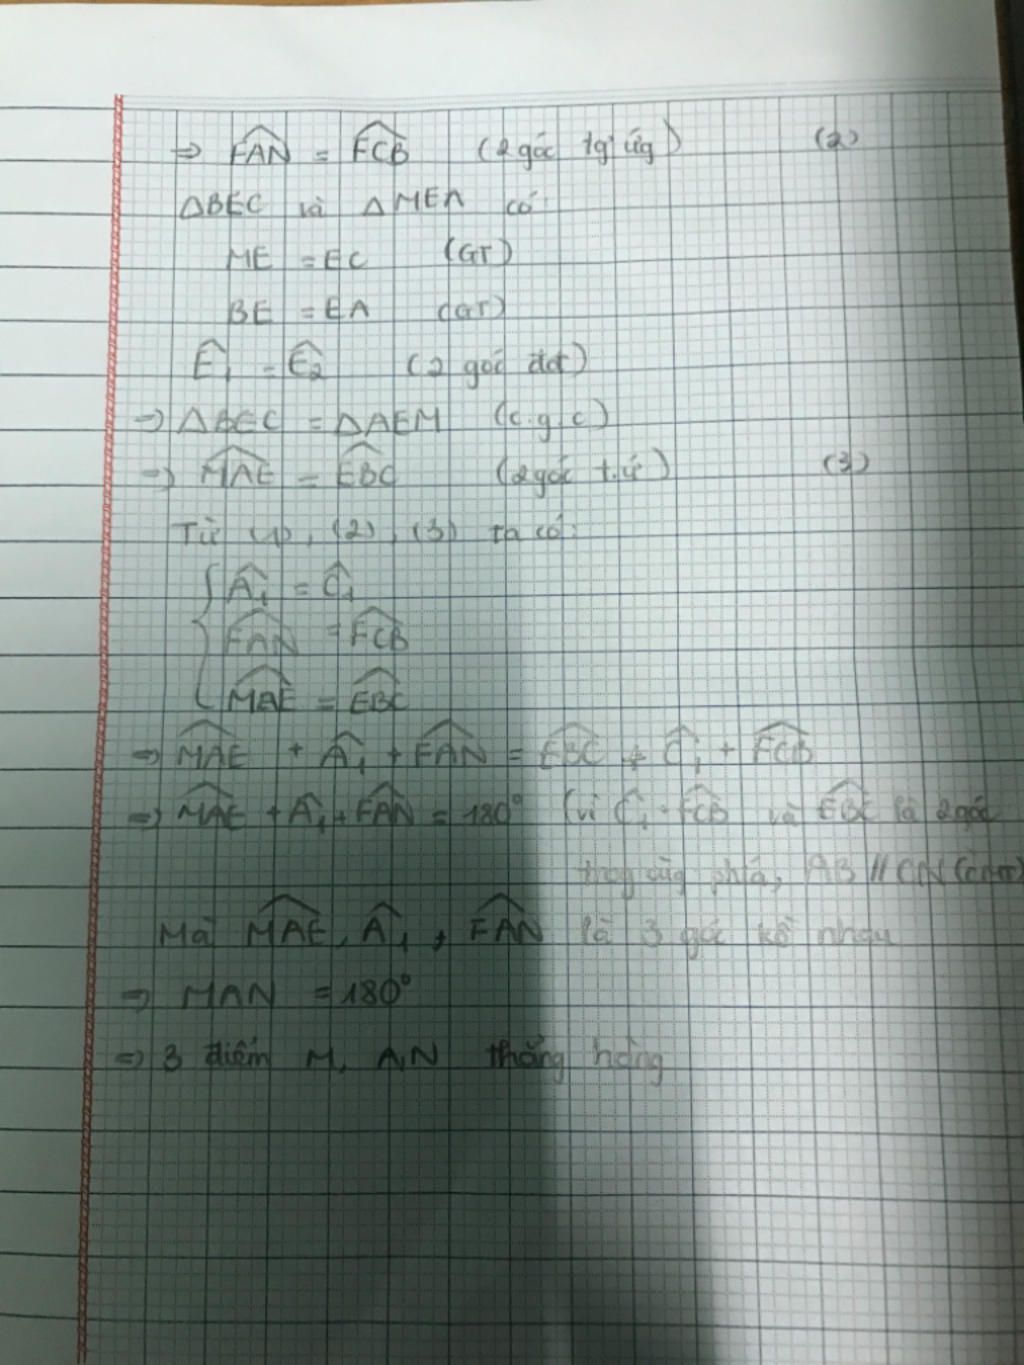 ⇒ FAN = FCB (2 góc tg ứg) (2)
ΔBEC và ΔMEA có:
ME = EC (GT)
BE = EA (GT)
Ê₁ = Ê₂ (2 góc đđ)
⇒ ΔBEC = ΔAEM (c.g.c)
⇒ MAE = EBC (2 góc t.ứ) (3)
Từ (1), (2), (3) ta có:
Â₁ = Ĉ₁
FAN = FCB
MAE = EBC
⇒ MAE + Â₁ + FAN = EBC + Ĉ₁ + FCB
⇒ MAE + Â₁ + FAN = 180° (vì Ĉ₁ + FCB và EBC là 2 góc
trog cùg phía, AB // CN (cmt)
Mà MAE, Â₁, FAN là 3 góc kề nhau
⇒ MAN = 180°
⇒ 3 điểm M, A, N thẳng hàng